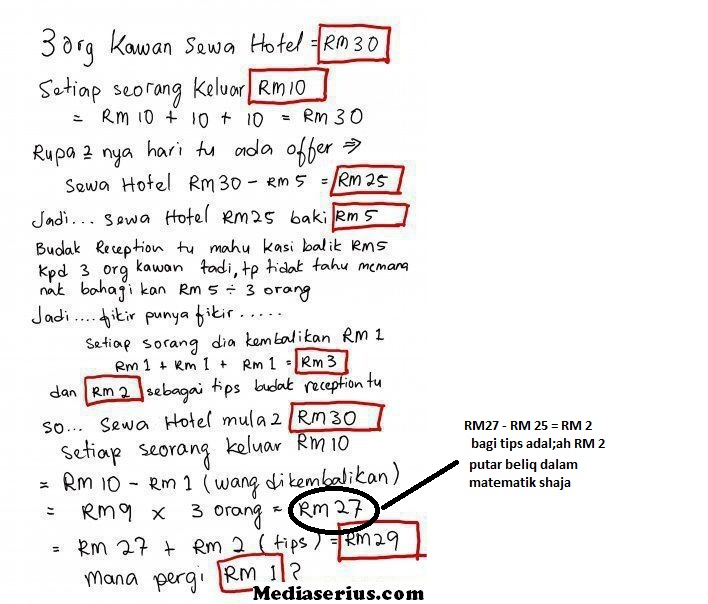 3 org Kawan Sewa Hotel = RM 30
Setiap seorang Keluar RM 10
= RM 10 + 10 + 10 = RM 30
Rupa2 nya hari tu ada offer ⇒
Sewa Hotel RM 30 - RM 5 = RM 25
Jadi... Sewa Hotel RM 25 baki RM 5
Budak Reception tu mahu kasi balik RM5
Kpd 3 org kawan tadi, tp tidak tahu mcmana
nak bahagi kan RM 5 ÷ 3 orang
Jadi .... fikir punya fikir .....
Setiap sorang dia kembalikan RM 1
RM 1 + RM 1 + RM 1 = RM 3
dan RM 2 sebagai tips budak reception tu
so... Sewa Hotel mula2 RM 30
Setiap seorang keluar RM 10
= RM 10 - RM 1 (wang dikembalikan)
= RM9 x 3 orang = RM 27
= RM 27 + RM 2 (tips) = RM 29
Mana pergi RM 1 ?
RM27 - RM 25 = RM 2
bagi tips adal;ah RM 2
putar beliq dalam
matematik shaja
Mediaserius.com